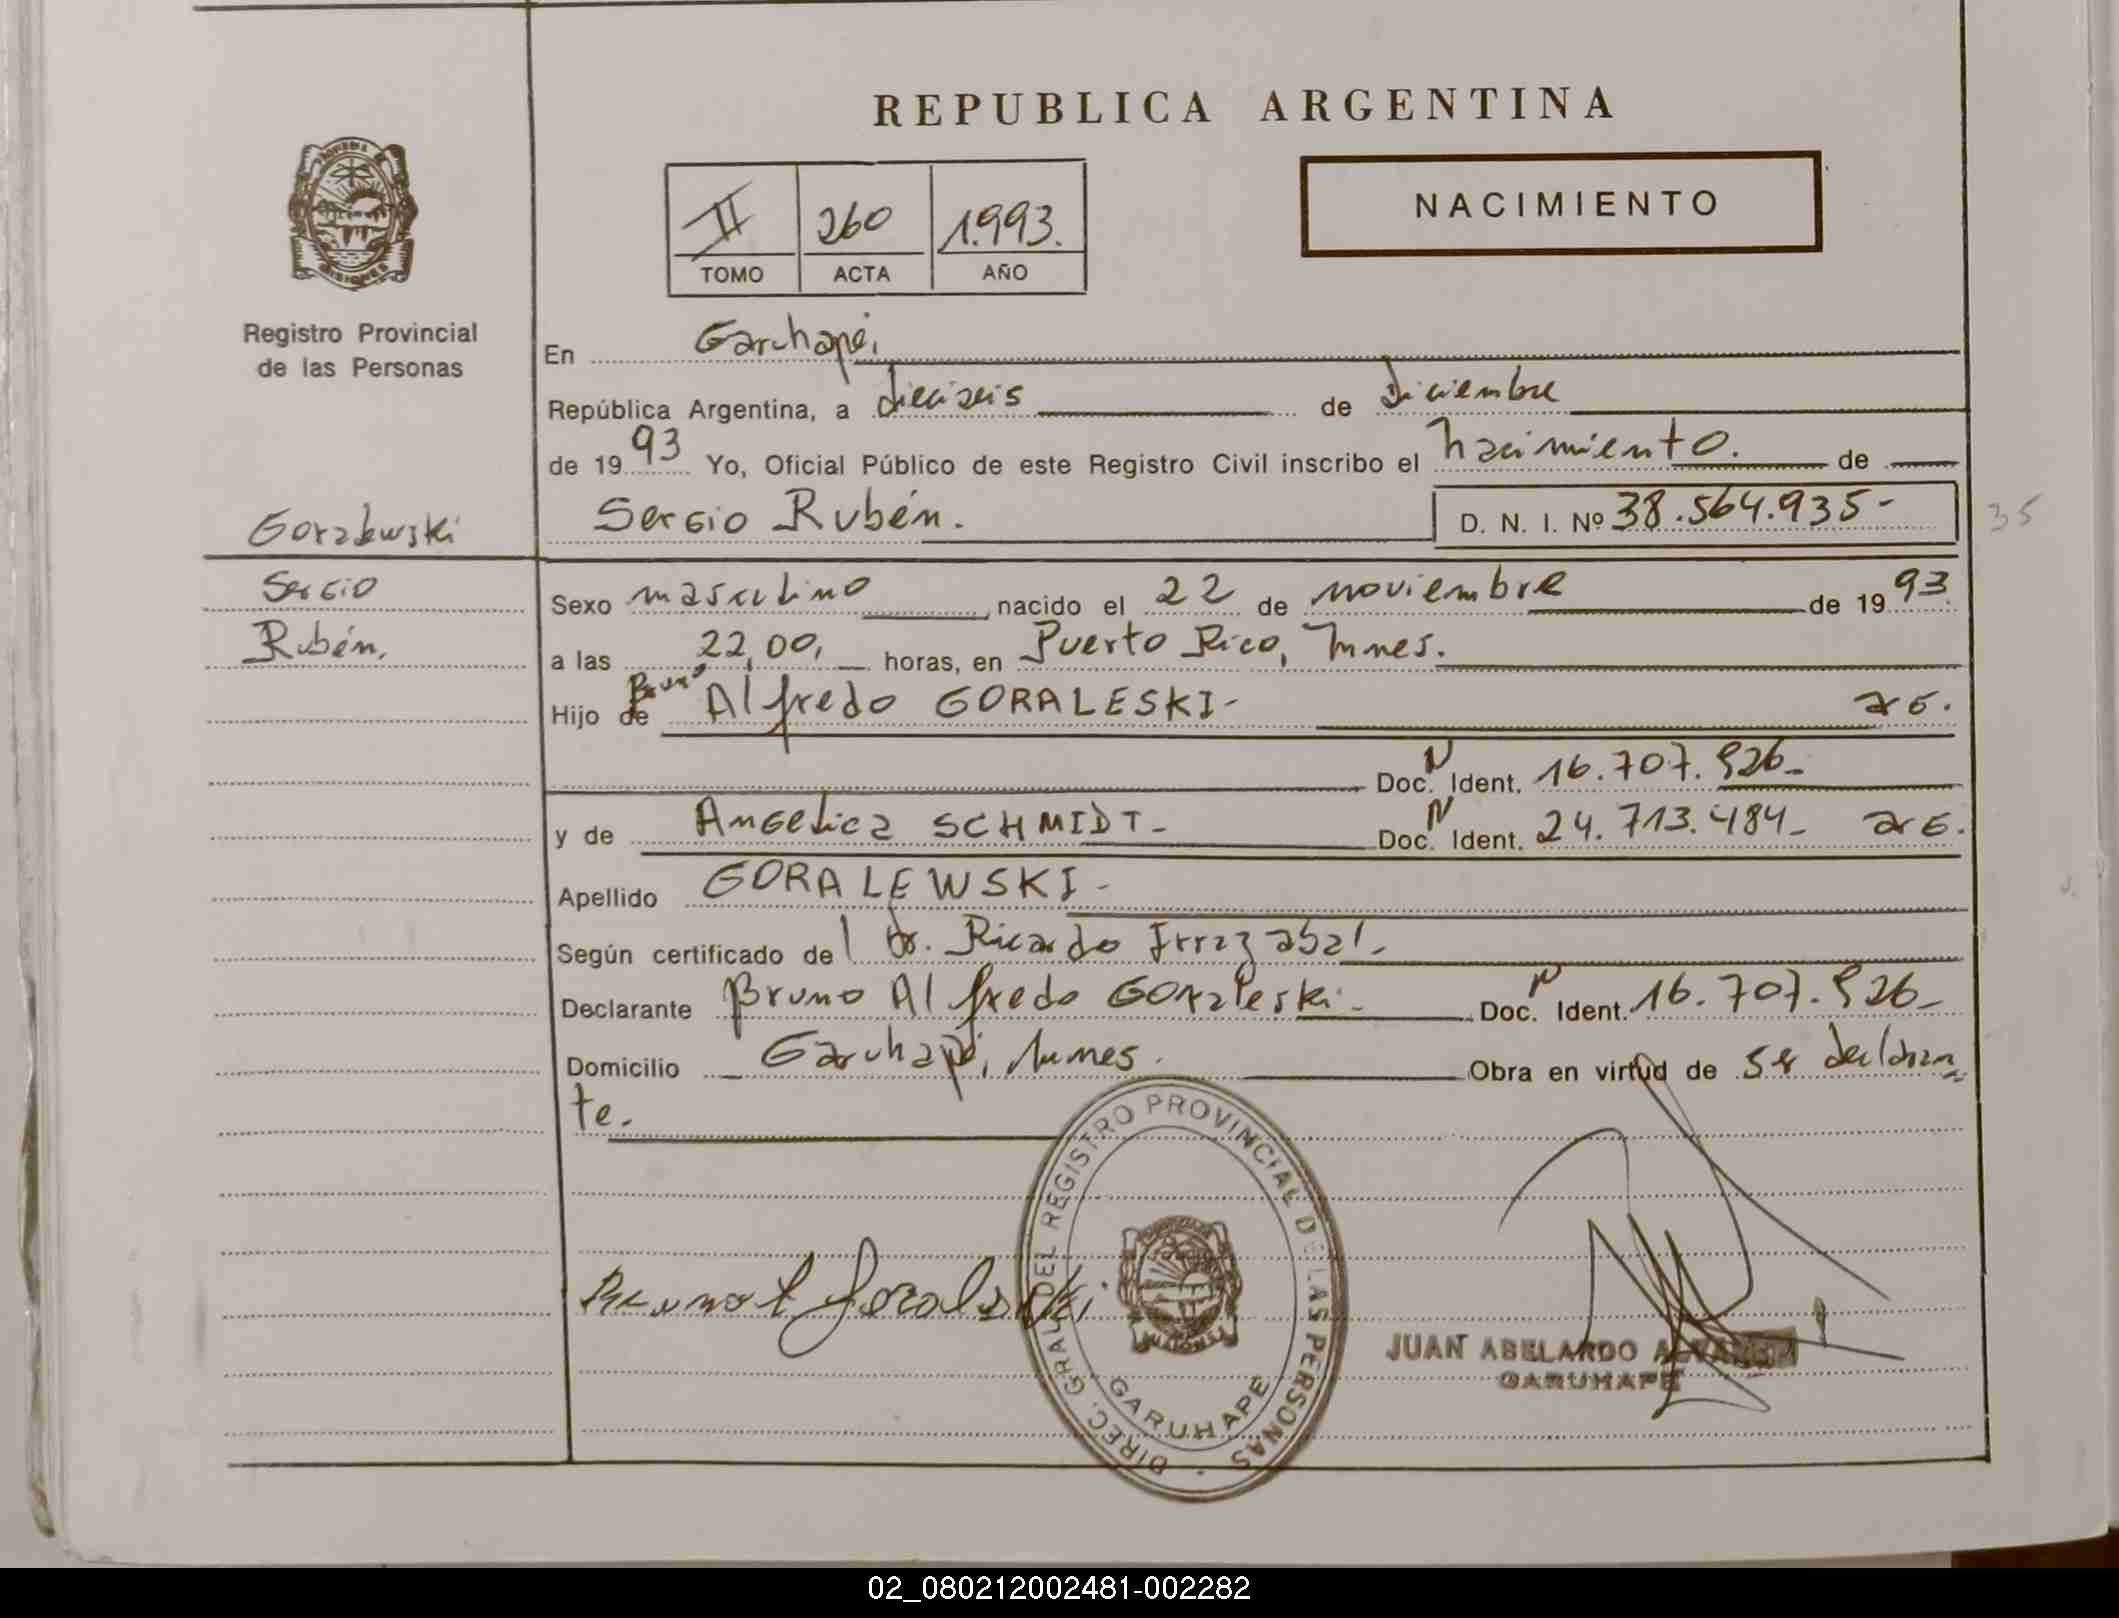 REPUBLICA ARGENTINA
NACIMIENTO
II 260 1.993.
TOMO ACTA AÑO
Registro Provincial
de las Personas
En Garuhapé,
República Argentina, a dieciseis de Diciembre
de 1993 Yo, Oficial Público de este Registro Civil inscribo el nacimiento. de
Sergio Rubén. D. N. I. Nº 38.564.935-
35
Goralewski
Sergio
Rubén.
Sexo masculino nacido el 22 de noviembre de 1993
a las 22,00, horas, en Puerto Rico, Mnes.
Hijo de Bruno Alfredo GORALESKI- arg.
Doc. N Ident. 16.707.926-
y de Angelica SCHMIDT- Doc. N Ident. 24.713.484- arg.
Apellido GORALEWSKI-
Según certificado del Dr. Ricardo Irrazabal-
Declarante Bruno Alfredo Goraleski- Doc. N Ident. 16.707.926-
Domicilio Garuhapé, Mnes. Obra en virtud de ser declaran
te.
DIREC. GRAL. DEL REGISTRO PROVINCIAL DE LAS PERSONAS
GARUHAPE
MISIONES
JUAN ABELARDO
GARUHAPE
02_080212002481-002282